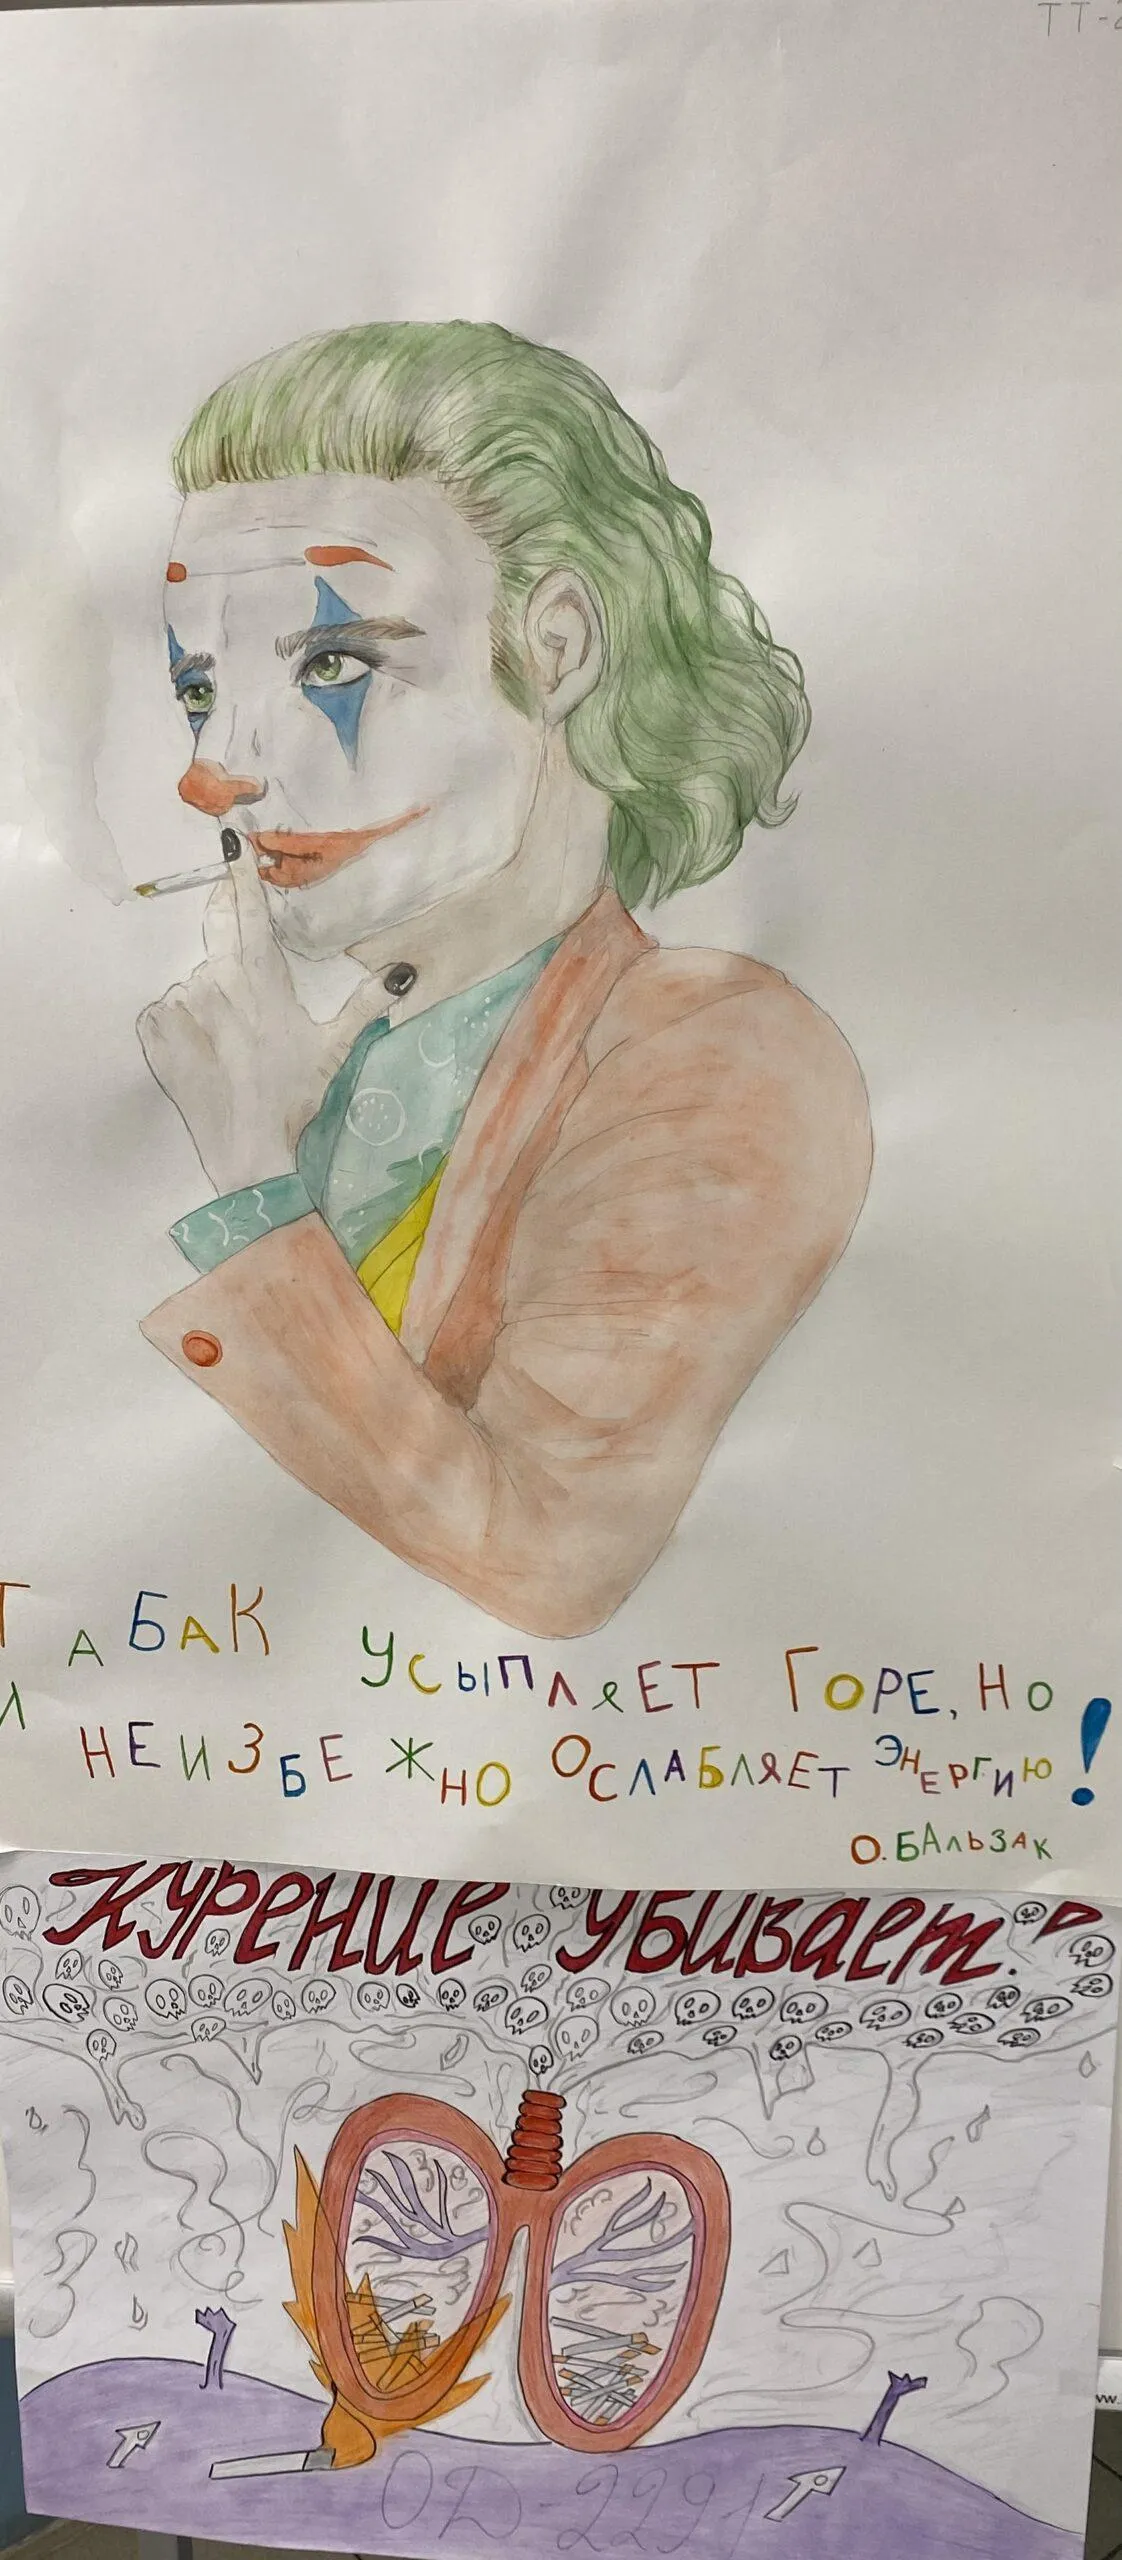 ТТ-2
ТАБАК УСЫПЛЯЕТ ГОРЕ, НО
И НЕИЗБЕЖНО ОСЛАБЛЯЕТ ЭНЕРГИЮ!
О. БАЛЬЗАК
Курение убивает!
ОД-2291